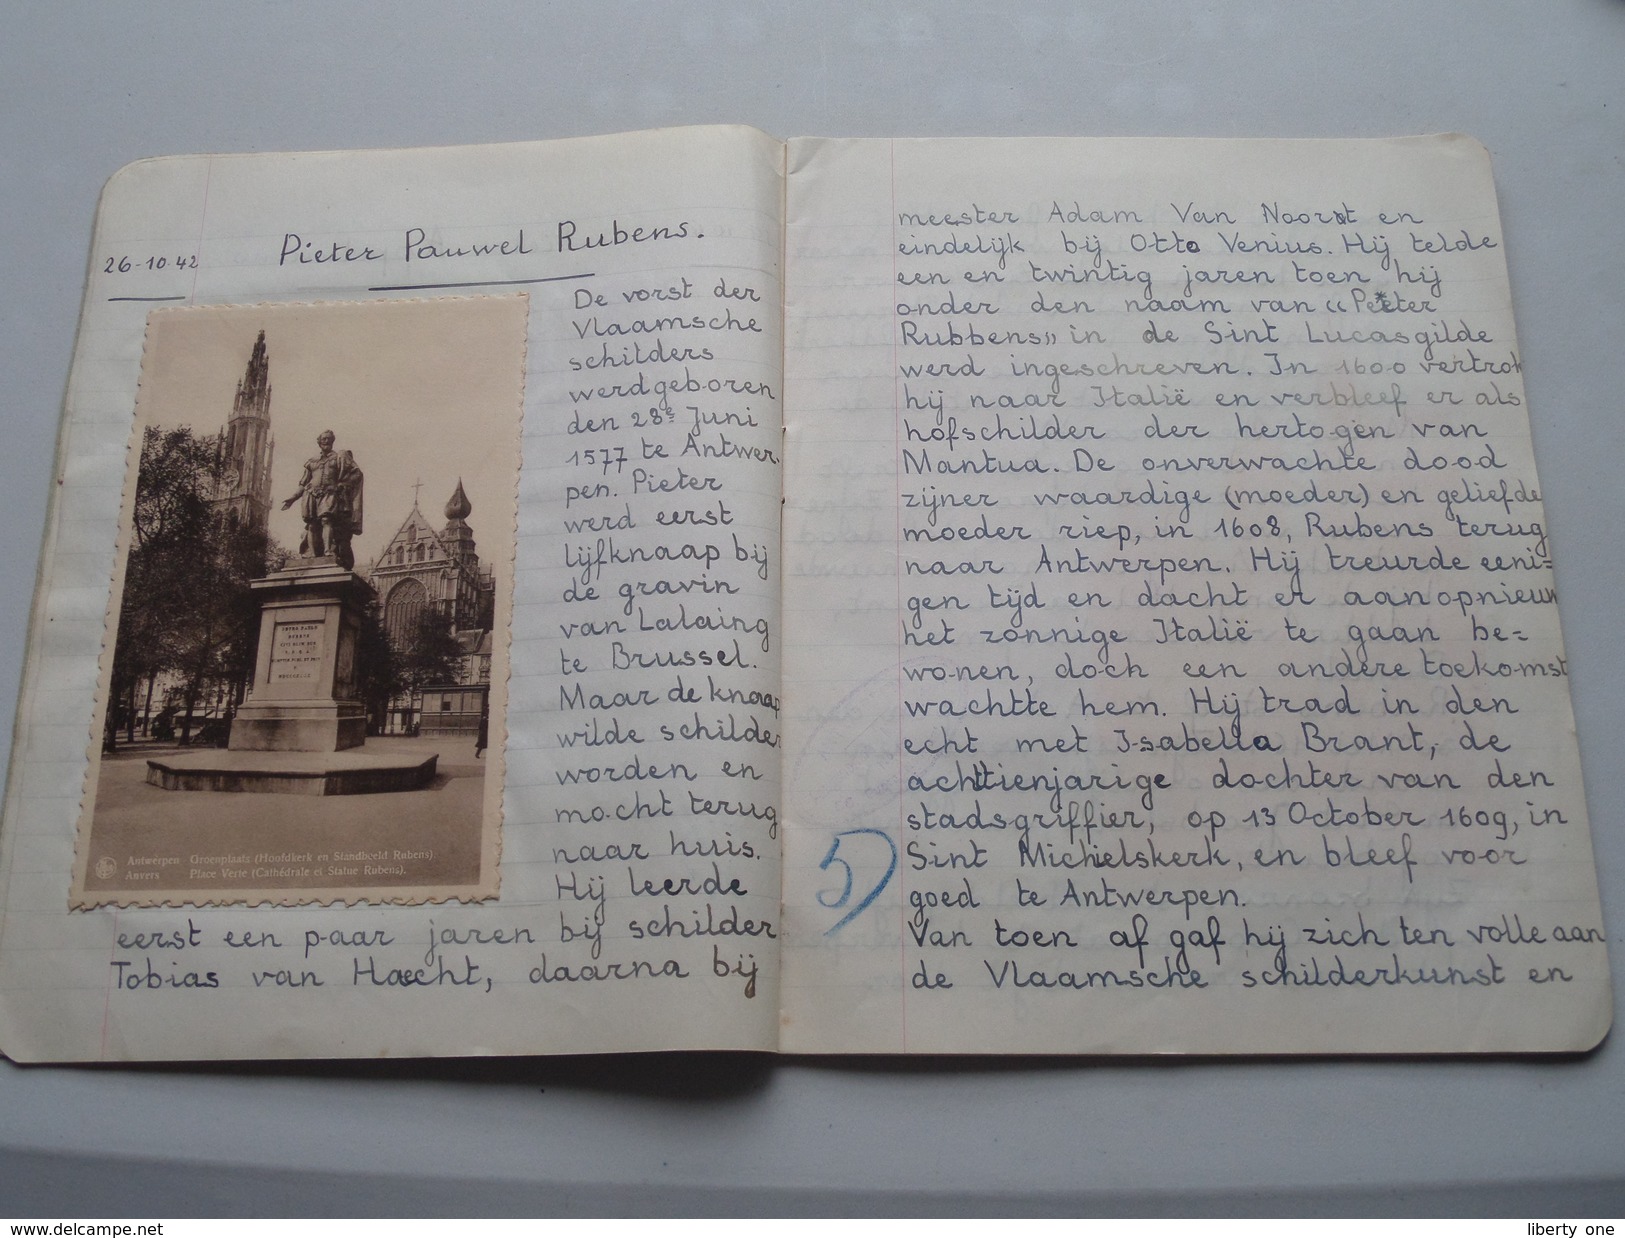 26-10-42
Pieter Pauwel Rubens.
De vorst der
Vlaamsche
schilders
werd geboren
den 28e Juni
1577 te Antwer-
pen. Pieter
werd eerst
lijfknaap bij
de gravin
van Lalaing
te Brussel.
Maar de knaap
wilde schilder
worden en
mocht terug
naar huis.
Hij leerde
eerst een paar jaren bij schilder
Tobias van Haecht, daarna bij
Antwerpen Groenplaats (Hoofdkerk en Standbeeld Rubens)
Anvers Place Verte (Cathédrale et Statue Rubens).
meester Adam Van Noort en
eindelijk bij Otto Venius. Hij telde
een en twintig jaren toen hij
onder den naam van "Peeter
Rubbens" in de Sint Lucasgilde
werd ingeschreven. In 1600 vertrok
hij naar Italië en verbleef er als
hofschilder der hertogen van
Mantua. De onverwachte dood
zijner waardige (moeder) en geliefde
moeder riep, in 1608, Rubens terug
naar Antwerpen. Hij treurde eeni=
gen tijd en dacht er aan opnieuw
het zonnige Italië te gaan be=
wonen, doch een andere toekomst
wachtte hem. Hij trad in den
echt met Isabella Brant, de
achttienjarige dochter van den
stadsgriffier, op 13 October 1609, in
Sint Michielskerk, en bleef voor
goed te Antwerpen.
Van toen af gaf hij zich ten volle aan
de Vlaamsche schilderkunst en
5
www.delcampe.net
liberty one